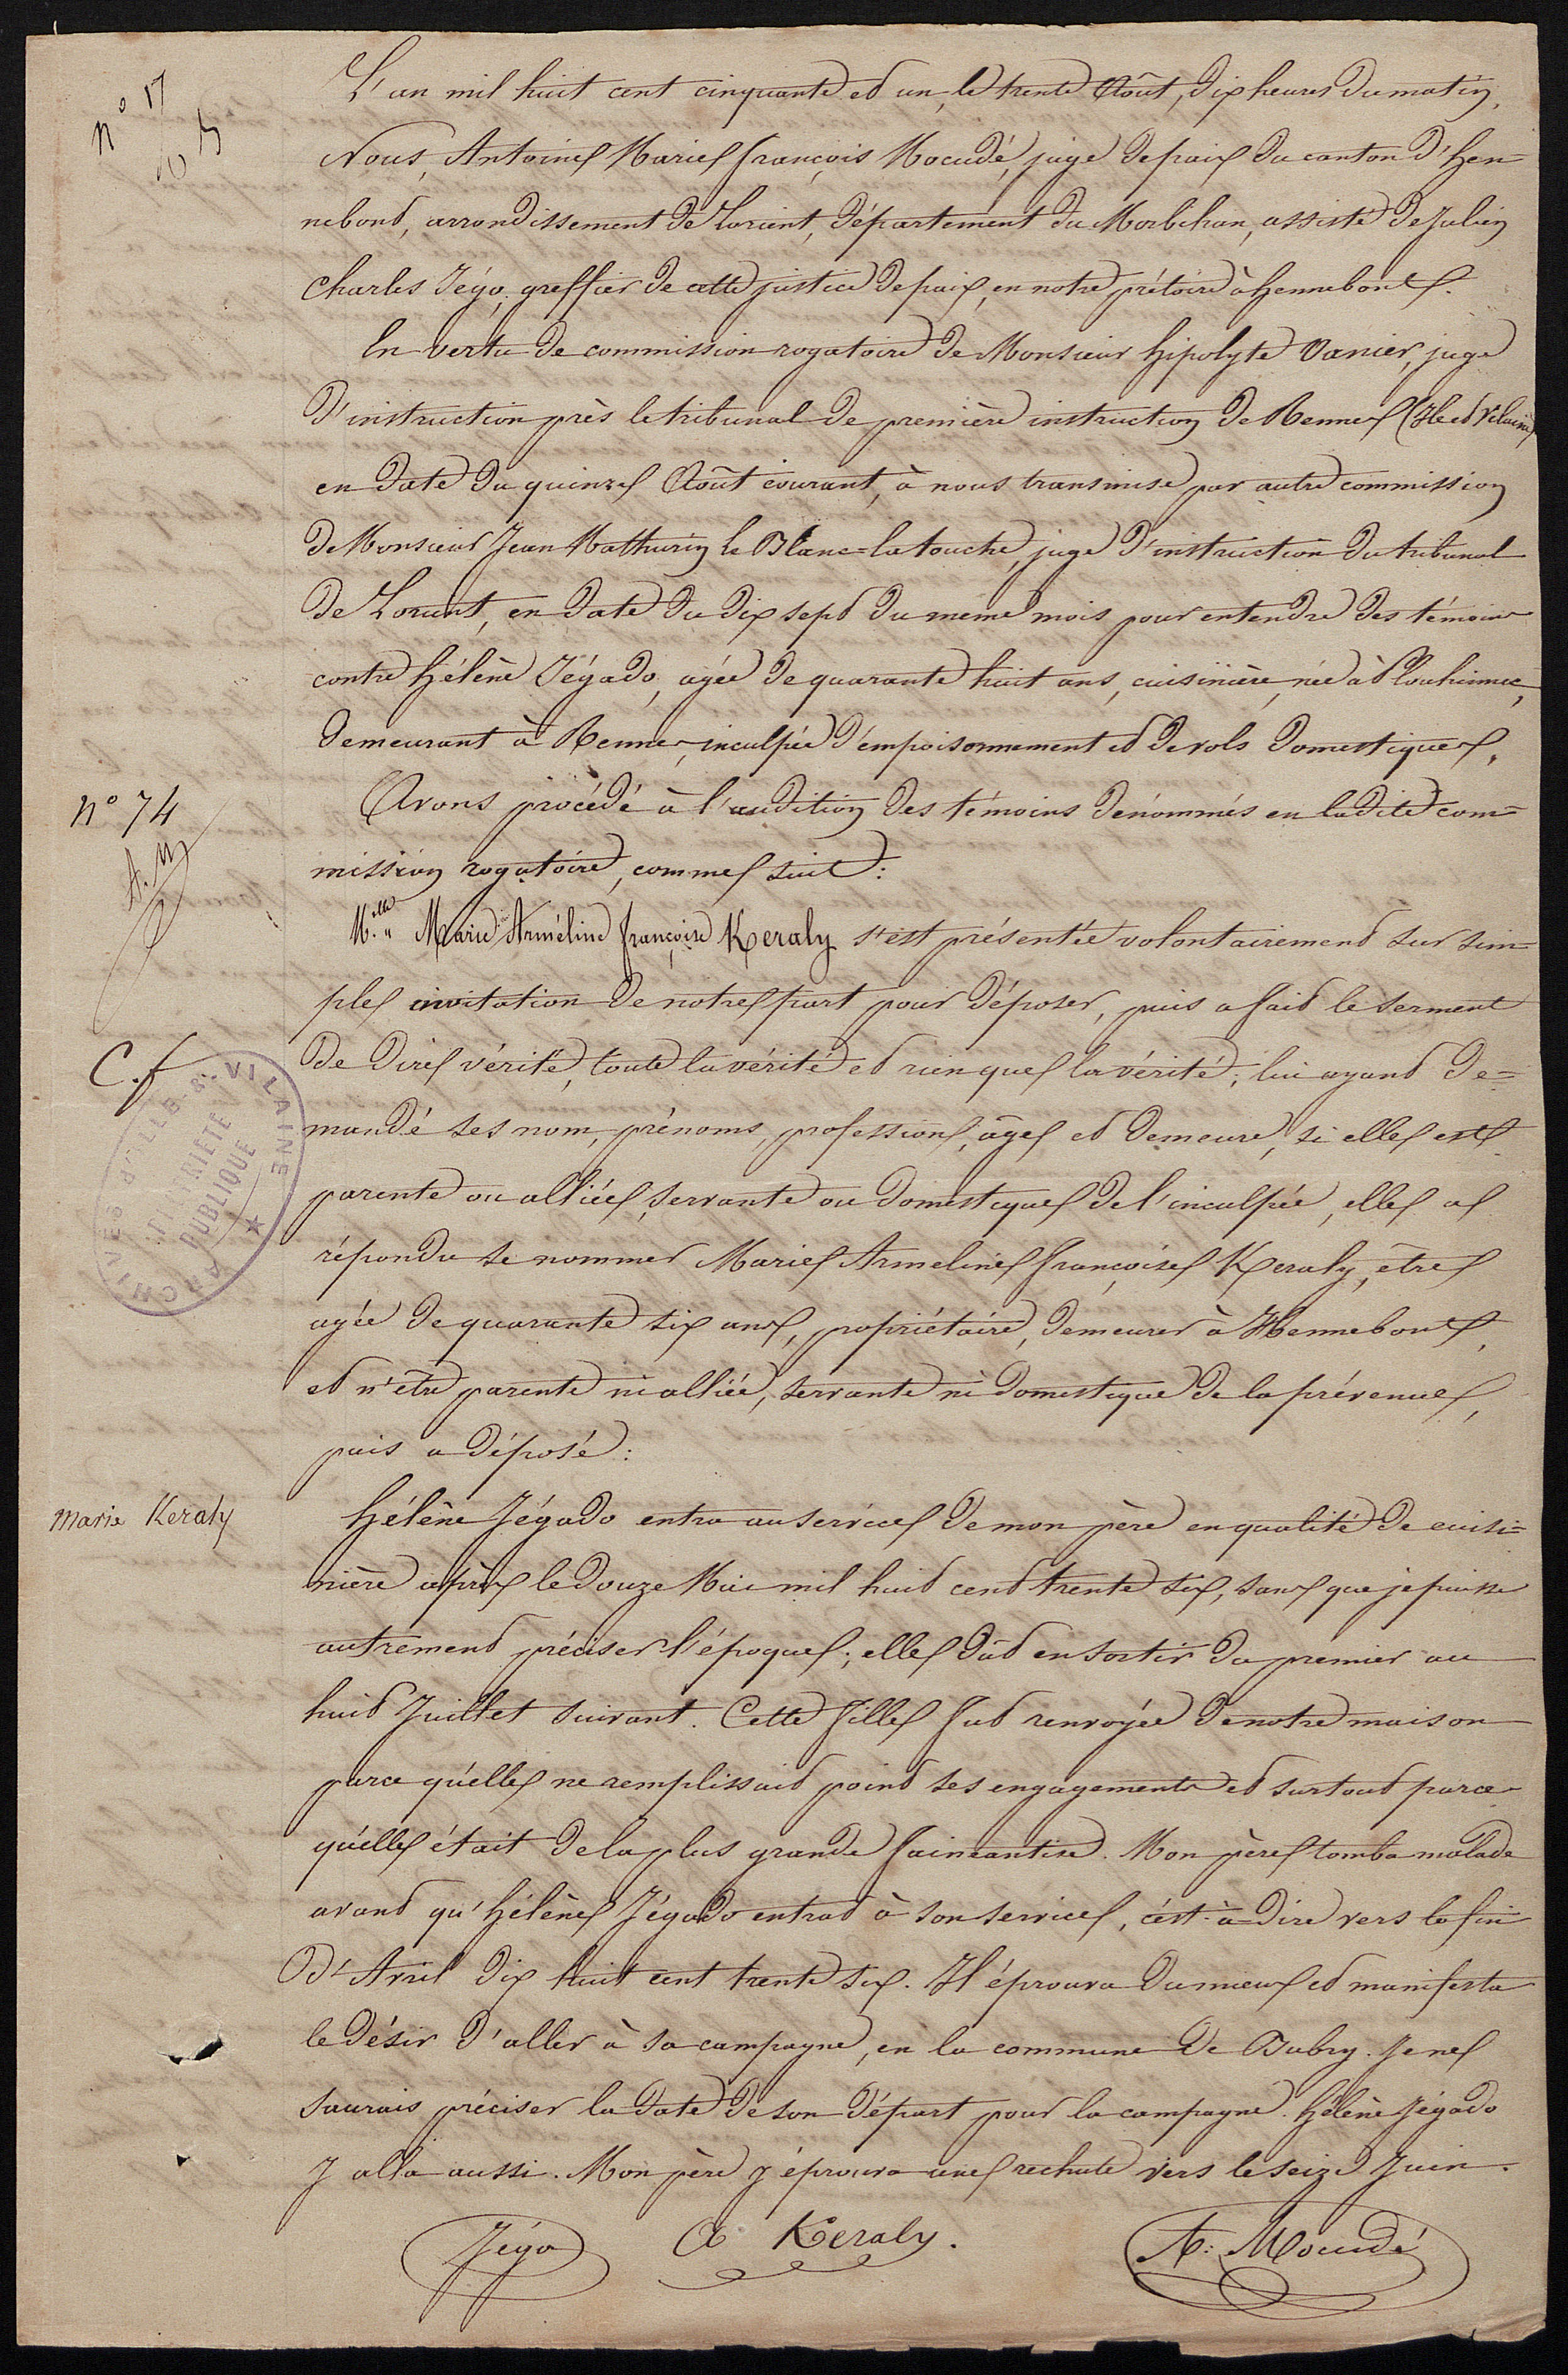 n° 17
L'an mil huit cent cinquante et un, le trente Août, dix heures du matin,
Nous, Antoine Marie françois Mocudé, juge de paix du canton d'Hen=
nebont, arrondissement de Lorient, département du Morbihan, assisté de Julien
Charles Jégo, greffier de cette justice de paix, en notre prétoire à hennebont.
En vertu de commission rogatoire de Monsieur hipolyte Vanier, juge
d'instruction près le tribunal de première instruction de Rennes (Ille et Vilaine)
en date du quinze Août courant, à nous transmise par autre commission
de Monsieur Jean Mathurin le Blanc=latouche, juge d'instruction du tribunal
de Lorient, en date du dix sept du même mois pour entendre des témoins
contre hélène Jégado, agée de quarante huit ans, cuisinière, née à Plouhinnec,
demeurant à Rennes, inculpée d'empoisonnement et de vols domestiques,
n° 74
Avons procédé à l'audition des témoins dénommés en ladite com=
mission rogatoire, comme suit :
M.elle Marie Arméline françoise Keraly s'est présentée volontairement sur sim=
ple invitation de notre part pour déposer, puis a fait le serment
C.f
de dire vérité, toute la vérité et rien que la vérité; lui ayant de=
mandé ses nom, prénoms, profession, âge et demeure, si elle est
parente ou alliée, servante ou domestique de l'inculpée, elle a
répondu se nommer Marie Armeline françoise Keraly, être
agée de quarante six ans, propriétaire, demeurer à Hennebont,
et n'être parente ni alliée, servante ni domestique de la prévenue,
puis a déposé :
ARCHIVES D'ILLE-&-VILAINE
PROPRIÉTÉ
PUBLIQUE
Marie Keraly
hélène Jégado entra au service de mon père en qualité de cuisi=
nière après le douze Mai mil huit cent trente six, sans que je puisse
autrement préciser l'époque; elle dût en sortir du premier au
huit Juillet suivant. Cette fille fut renvoyée de notre maison
parce qu'elle ne remplissait point ses engagements et surtout parce
qu'elle était de la plus grande faineantise. Mon père tomba malade
avant qu'hélène Jégado entrat à son service, c'est-à-dire vers la fin
d'Avril dix huit cent trente six. Il éprouva du mieux et manifesta
le désir d'aller à sa campagne, en la commune de Bubry. Je ne
saurais préciser la date de son départ pour la campagne. hélène Jégado
y alla aussi. Mon père y éprouva une rechute vers le seize Juin.
Jégo
A Keraly.
A: Mocudé